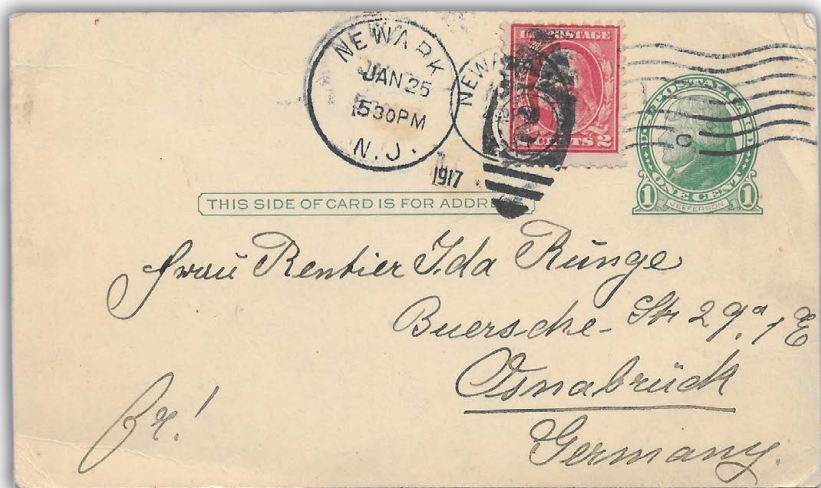 NEWARK
JAN 25
530PM
N.J.
1917
NEW
U.S. POSTAGE
2 CENTS 2
U.S. POSTAL CARD
1 ONE CENT 1
JEFFERSON
THIS SIDE OF CARD IS FOR ADDRE
Frau Rentier Ida Runge
Buersche-Str 29a, 1 E
Osnabrück
Germany.